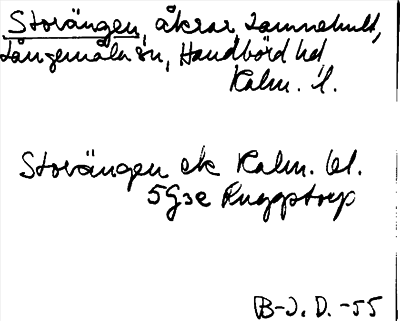 Storängen, åkrar, Lamnehult,
Långemåla sn, Handbörd hd
Kalm. l.
Storängen ek Kalm. bl.
5G3e Ruggstorp
B-J. D. -55